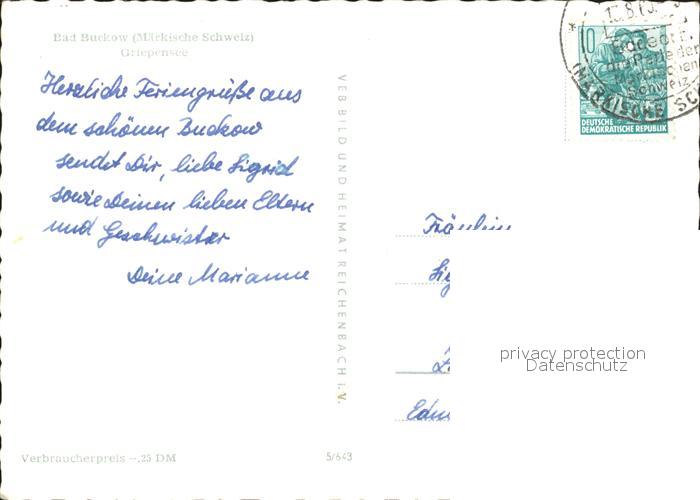 Bad Buckow (Märkische Schweiz)
Griepensee
Herzliche Feriengrüße aus
dem schönen Buckow
sendet Dir, liebe Sigrid
sowie Deinen lieben Eltern
und Geschwister
Deine Marianne
VEB BILD UND HEIMAT REICHENBACH i.V.
10
DEUTSCHE
DEMOKRATISCHE REPUBLIK
Perle der
Märkischen
Schweiz
(MÄRKISCHE
Fräulein
privacy protection
Datenschutz
Verbraucherpreis –,25 DM
5/643